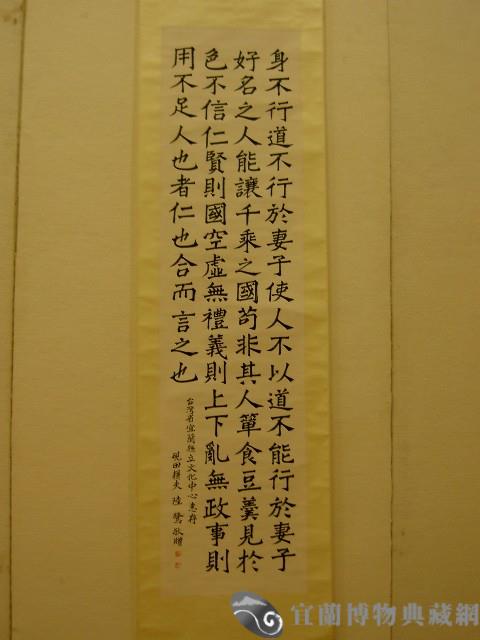 身不行道不行於妻子使人不以道不能行於妻子
好名之人能讓千乘之國苟非其人簞食豆羹見於
色不信仁賢則國空虛無禮義則上下亂無政事則
用不足人也者仁也合而言之也
台灣省宜蘭縣立文化中心惠存
硯田耕夫 陸 敬贈
宜蘭博物典藏網